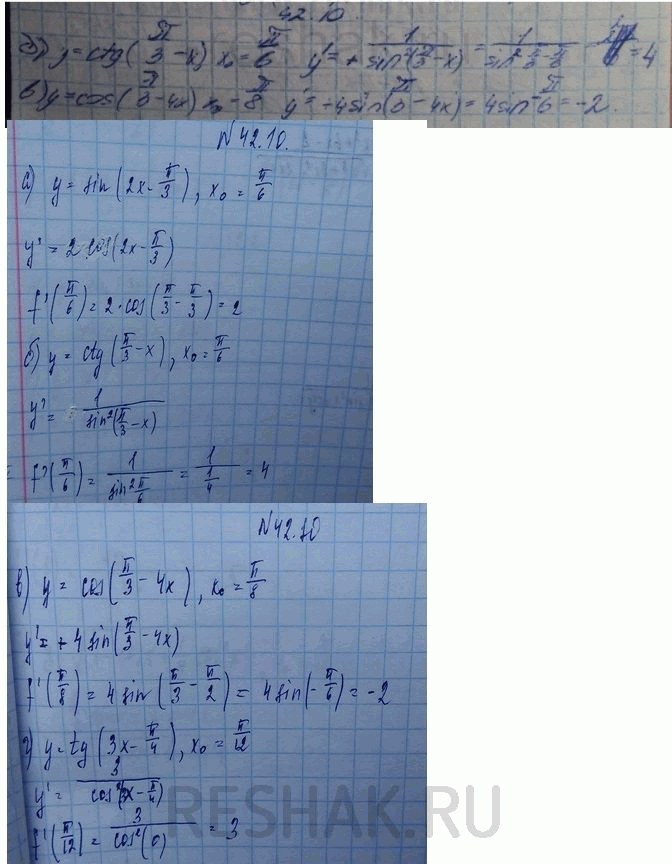 42.10.
б) y = ctg(π/3 - x) x₀ = π/6 y' = + 1/sin²(π/3 - x) = 1/sin² π/3 - π/6 = 4
в) y = cos(π/3 - 4x) x₀ = π/8 y' = +4 sin(π/3 - 4x) = 4 sin - π/6 = -2.
N 42.10.
а) y = sin(2x - π/3), x₀ = π/6
y' = 2 cos(2x - π/3)
f'(π/6) = 2 · cos(π/3 - π/3) = 2
б) y = ctg(π/3 - x), x₀ = π/6
y' = 1/sin²(π/3 - x)
f'(π/6) = 1/sin² π/6 = 1/(1/4) = 4
N 42.10
в) y = cos(π/3 - 4x), x₀ = π/8
y' = +4 sin(π/3 - 4x)
f'(π/8) = 4 sin(π/3 - π/2) = 4 sin(-π/6) = -2
г) y = tg(3x - π/4), x₀ = π/12
y' = 3/cos²(3x - π/4)
f'(π/12) = 3/cos²(0) = 3
RESHAK.RU